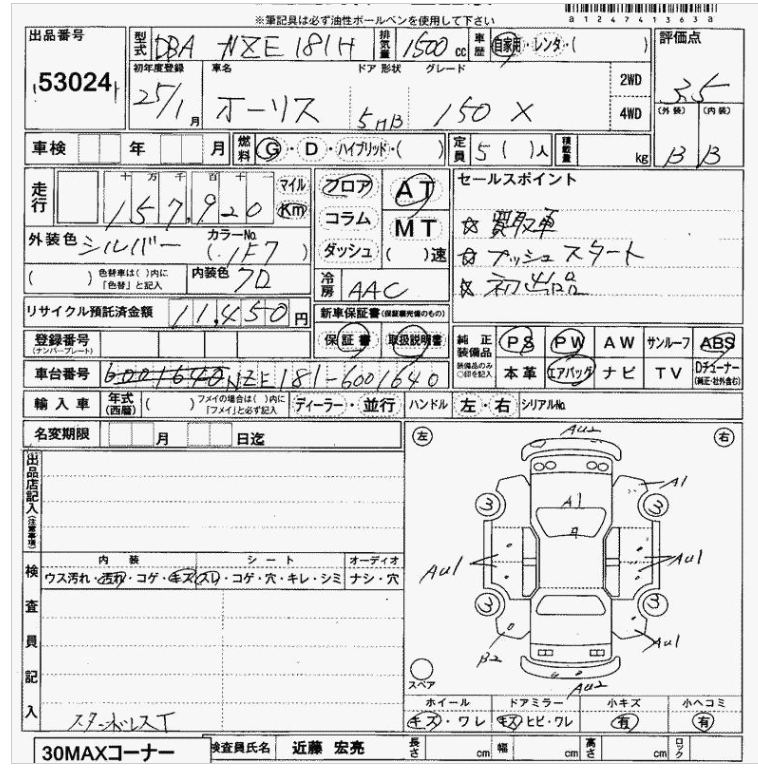 ※筆記具は必ず油性ボールペンを使用して下さい
a124741363a
出品番号 53024
型式 DBA NZE181H 排気量 1500 cc 車歴 自家用・レンタ・( )
評価点 3.5
初年度登録 25/1月 車名 オーリス ドア形状 5HB グレード 150X 2WD 4WD
(外装) B (内装) B
車検 年 月 燃料 G・D・ハイブリッド・( ) 定員 5( )人 積載量 kg
走行 十万千百十 157,920 マイル Km
フロア AT
コラム MT
ダッシュ ( )速
セールスポイント
☆ 買取車
☆ プッシュスタート
☆ 初出品
外装色 シルバー カラーNo. (1F7)
( ) 色替車は( )内に「色替」と記入 内装色 クロ
冷房 AAC
リサイクル預託済金額 11,450円
新車保証書(保証継承優のもの)
保証書 取扱説明書
登録番号(ナンバープレート)
純正装備品 PS PW AW サンルーフ ABS
装備品のみ○印を記入 本革 エアバッグ ナビ TV Dチューナー(純正・社外含む)
車台番号 6001640 NZE181-6001640
輸入車 年式(西暦) ( ) フメイの場合は( )内に「フメイ」と必ず記入 ディーラー・並行 ハンドル 左・右 シリアルNo.
名変期限 月 日迄
出品店記入(注意事項)
左 右
AU2
A1
A1
3 3
AU1 AU1
3 3
B2 AU1
AU2
スペア
検査員記入
内装 シート オーディオ
ウス汚れ・汚れ・コゲ・キズ スレ・コゲ・穴・キレ・シミ ナシ・穴
スタッドレスT
ホイール ドアミラー 小キズ 小ヘコミ
キズ・ワレ キズ・ヒビ・ワレ 有 有
30MAXコーナー
検査員氏名 近藤 宏亮 長さ cm 幅 cm 高さ cm ロック